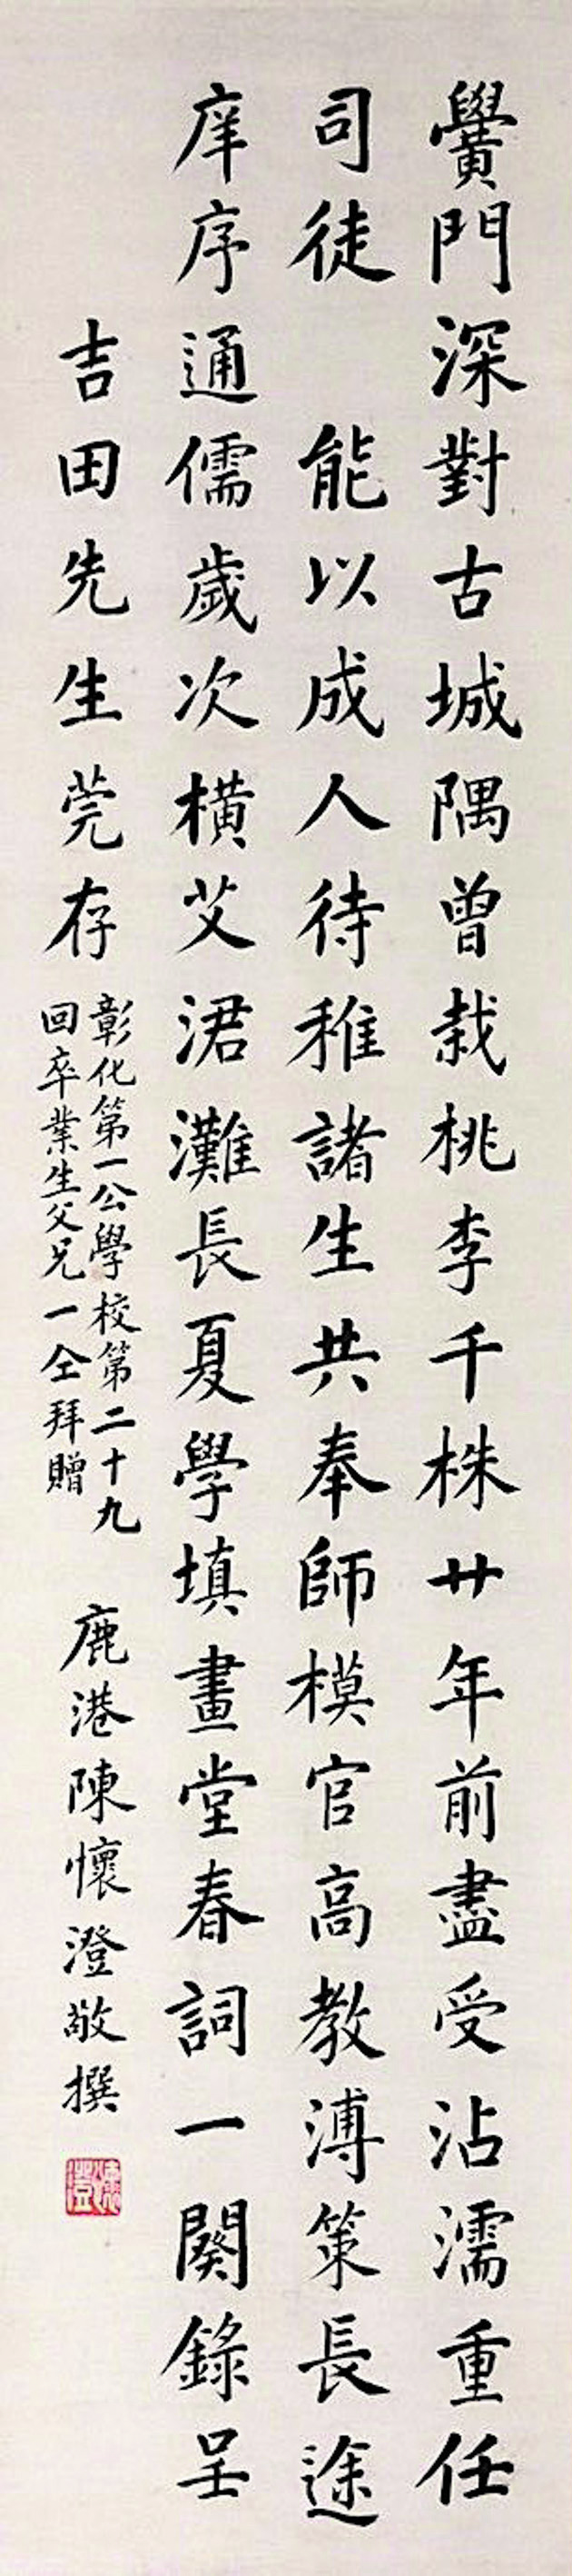 黌門深對古城隅曾栽桃李千株廿年前盡受沾濡重任
司徒　能以成人待稚諸生共奉師模官高教溥策長途
庠序通儒歲次橫艾涒灘長夏學填畫堂春詞一闋錄呈
吉田先生莞存
彰化第一公學校第二十九
回卒業生父兄一仝拜贈
鹿港陳懷澄敬撰
懷澄